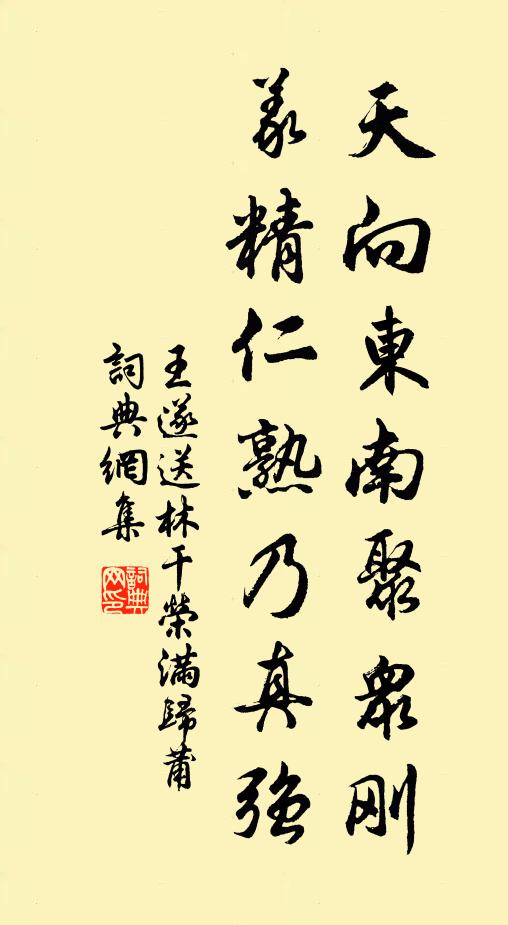 天向東南聚衆刚
義精仁熟乃真強
王遂送林干榮滿歸莆
詞典網集
詞典网印